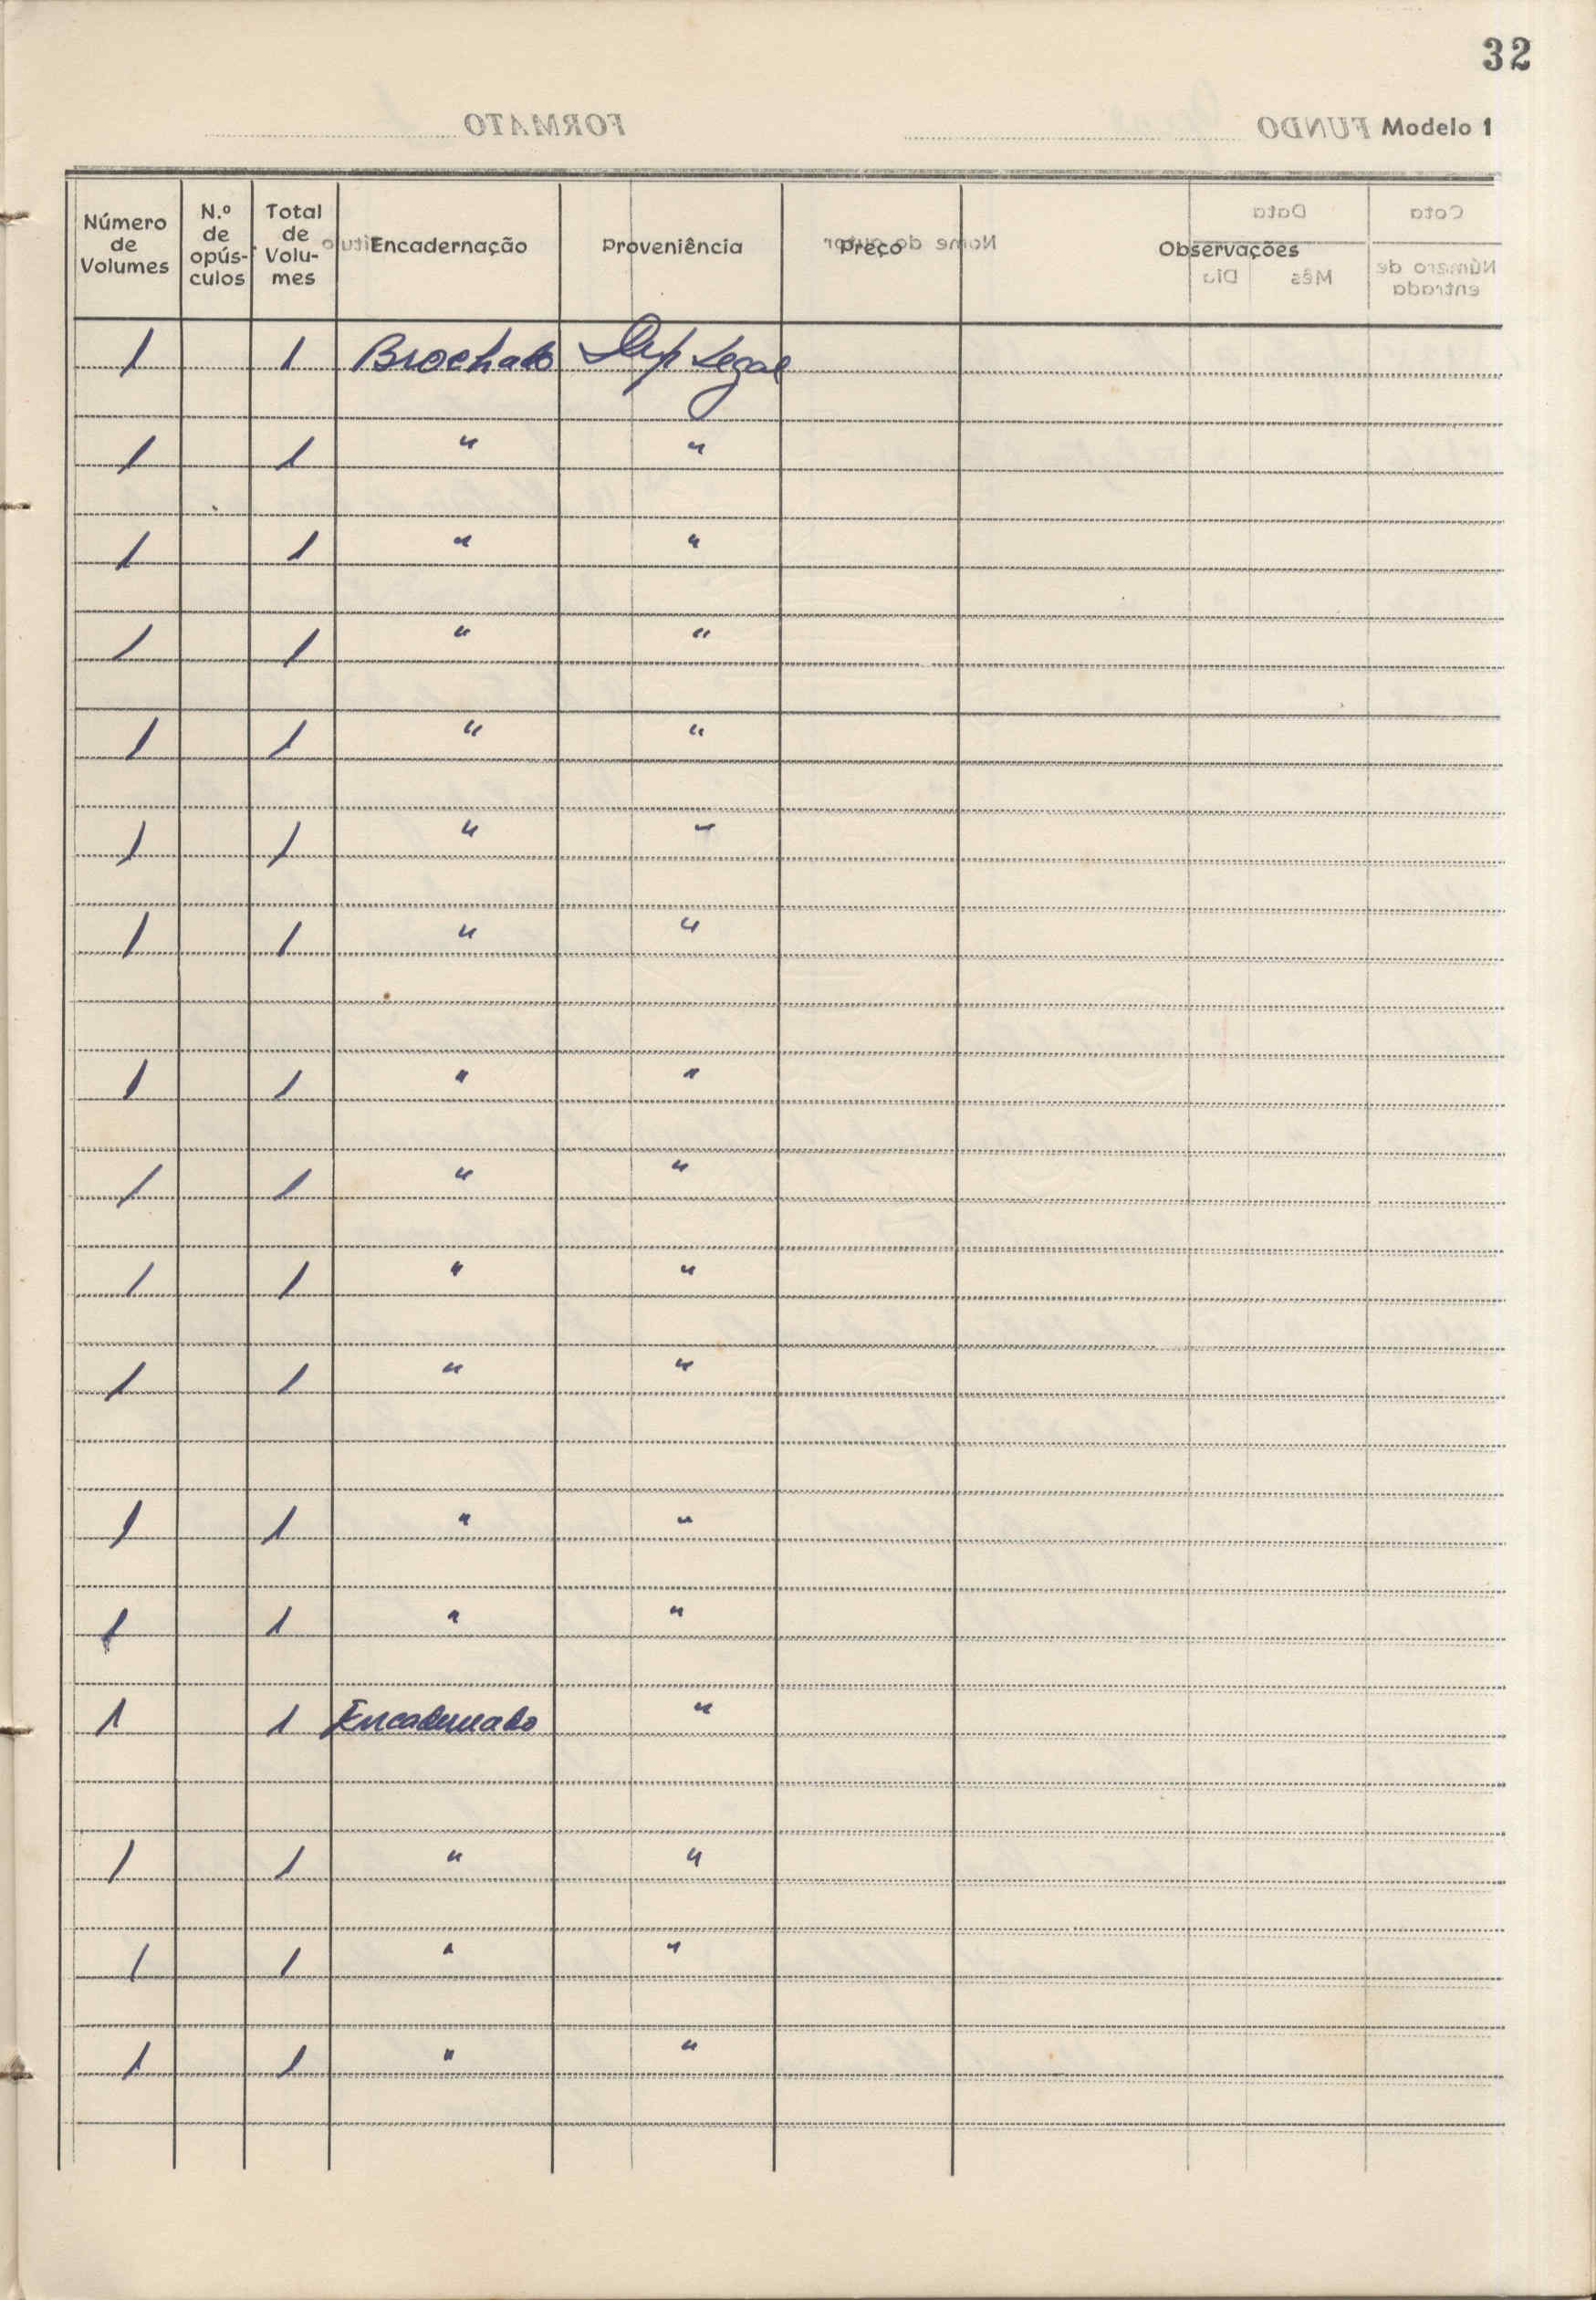 32
Modelo 1
Número de Volumes N.º de opús-culos Total de Volu-mes Encadernação Proveniência Preço Observações
1 1 Brochado Dep Legal
1 1 " "
1 1 " "
1 1 " "
1 1 " "
1 1 " "
1 1 " "
1 1 " "
1 1 " "
1 1 " "
1 1 " "
1 1 " "
1 1 " "
1 1 Encadernado "
1 1 " "
1 1 " "
1 1 " "